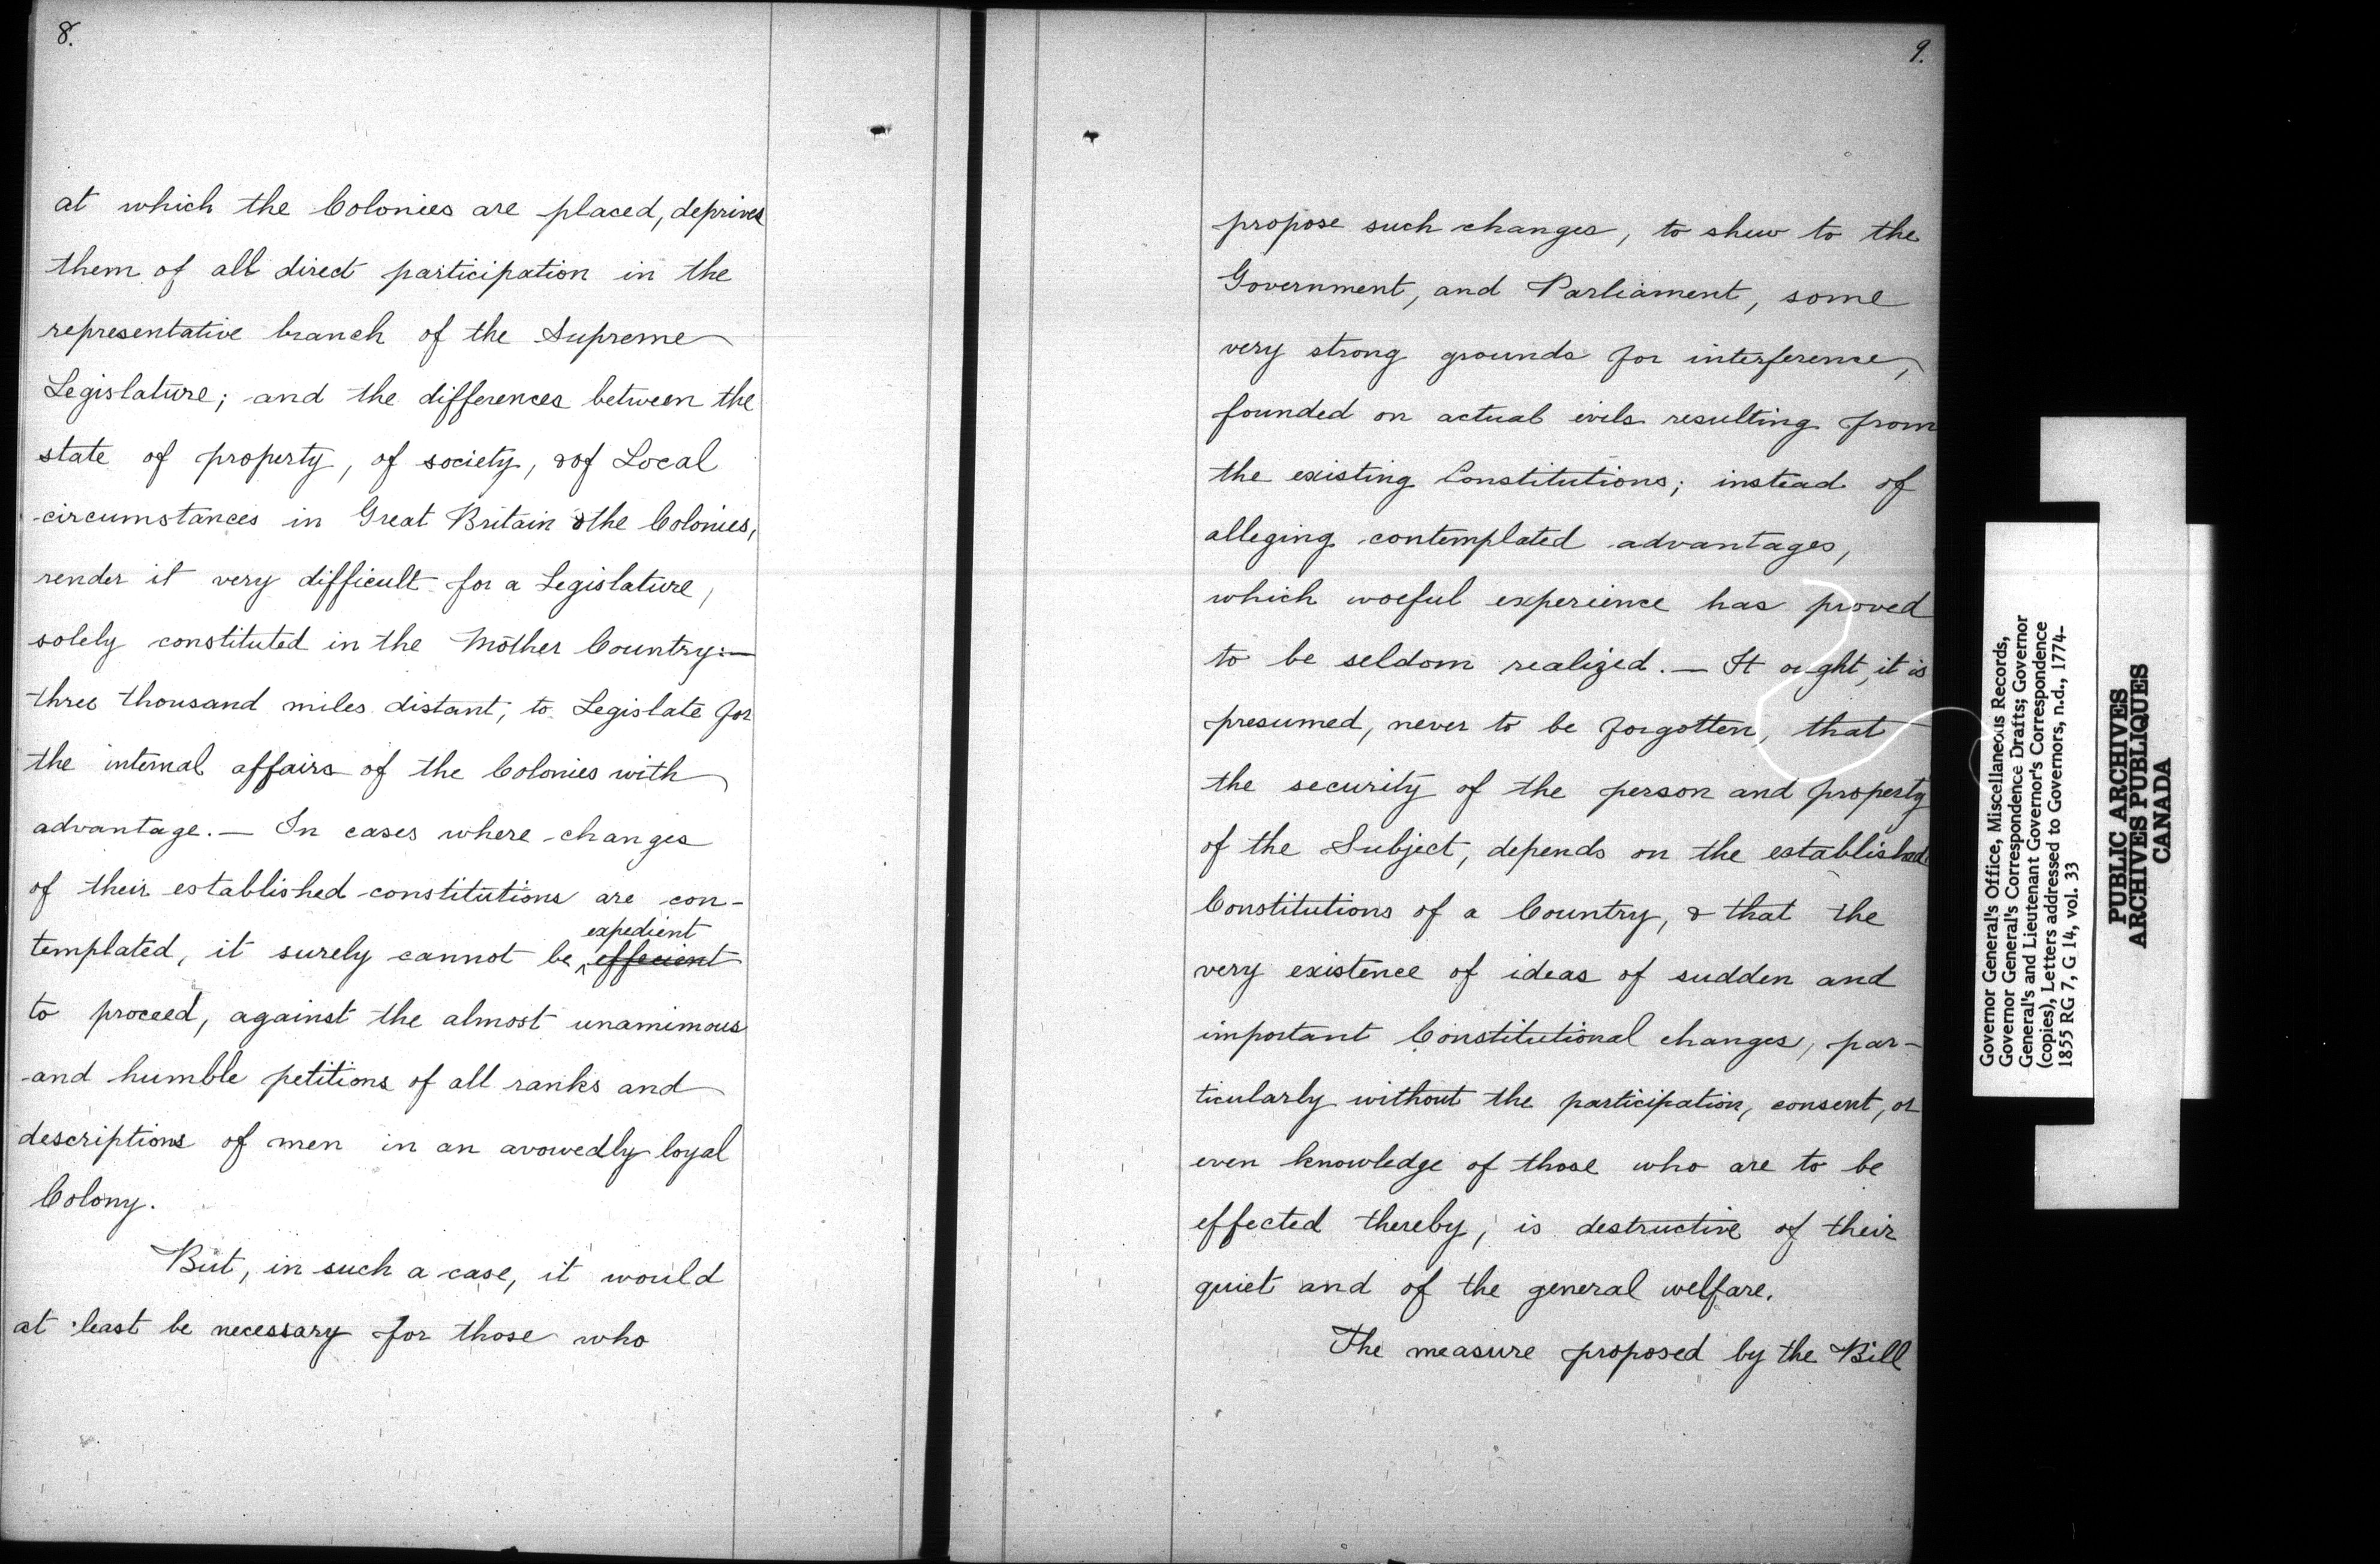 8.
at which the Colonies are placed, deprives
them of all direct participation in the
representative branch of the Supreme
Legislature; and the differences between the
state of property, of society, & of Local
circumstances in Great Britain & the Colonies,
render it very difficult for a Legislature,
solely constituted in the Mother Country:—
three thousand miles distant; to Legislate for
the internal affairs of the Colonies with
advantage. — In cases where changes
of their established constitutions are con-
expedient
templated, it surely cannot be effecient
to proceed, against the almost unamimous
and humble petitions of all ranks and
descriptions of men in an avowedly loyal
Colony.
But, in such a case, it would
at least be necessary for those who
9.
propose such changes, to shew to the
Government, and Parliament, some
very strong grounds for interference,
founded on actual evils resulting from
the existing Constitutions; instead of
alleging contemplated advantages,
which woeful experience has proved
to be seldom realized. — It ought, it is
presumed, never to be forgotten, that
the security of the person and property
of the Subject, depends on the established
Constitutions of a Country, & that the
very existence of ideas of sudden and
important Constitutional changes, par-
ticularly without the participation, consent, or
even knowledge of those who are to be
effected thereby, is destructive of their
quiet and of the general welfare.
The measure proposed by the Bill
Governor General's Office, Miscellaneous Records,
Governor General's Correspondence Drafts; Governor
General's and Lieutenant Governor's Correspondence
(copies), Letters addressed to Governors, n.d., 1774-
1855 RG 7, G 14, vol. 33
PUBLIC ARCHIVES
ARCHIVES PUBLIQUES
CANADA